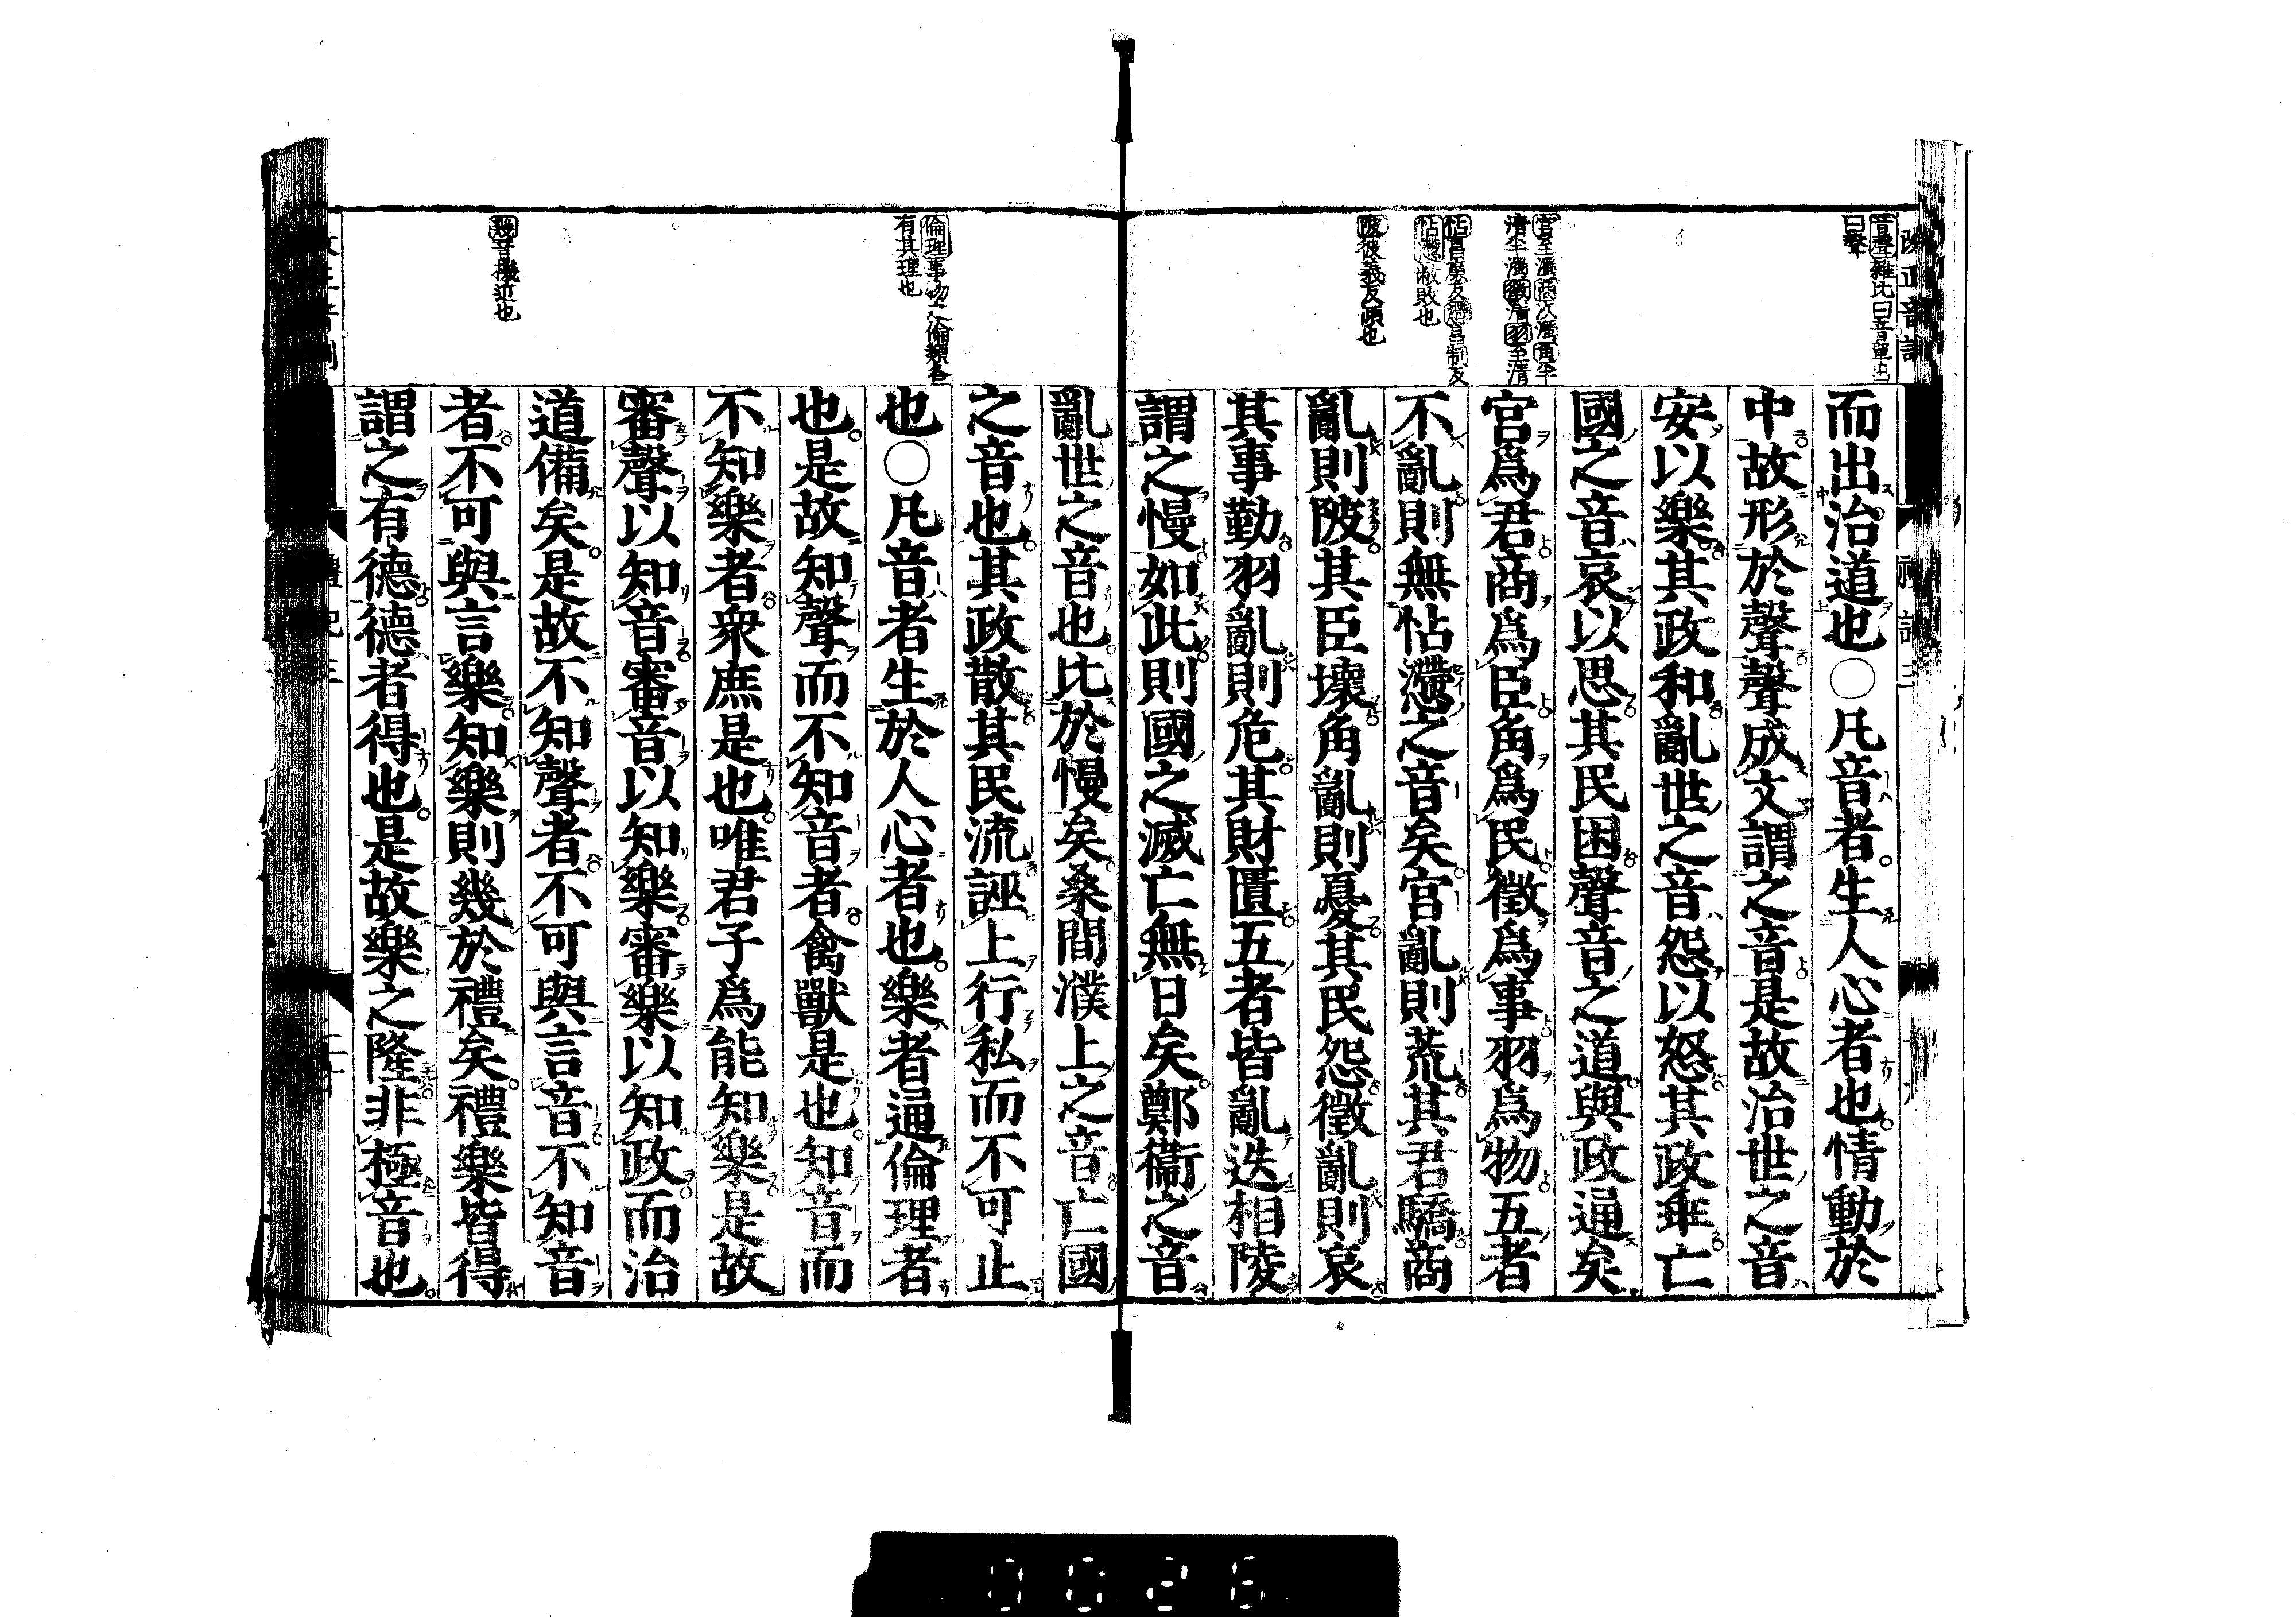 音聲雜比曰音單出
曰聲
宮至濁商次濁角半
清半濁徵清羽至清
怗昌廉反懘昌制反
怗懘敝敗也
陂彼義反頃也
而出治道也○凡音者生人心者也情動於
中故形於聲聲成文謂之音是故治世之音
安以樂其政和亂世之音怨以怒其政乖亡
國之音哀以思其民困聲音之道與政通矣
宮爲君商爲臣角爲民徵爲事羽爲物五者
不亂則無怗懘之音矣宮亂則荒其君驕商
亂則陂其臣壞角亂則憂其民怨徵亂則哀
其事勤羽亂則危其財匱五者皆亂迭相陵
謂之慢如此則國之滅亡無日矣鄭衞之音
倫理事物之倫類各
有其理也
幾音機近也
亂世之音也比於慢矣桑間濮上之音亡國
之音也其政散其民流誣上行私而不可止
也○凡音者生於人心者也樂者通倫理者
也是故知聲而不知音者禽獸是也知音而
不知樂者衆庶是也唯君子爲能知樂是故
審聲以知音審音以知樂審樂以知政而治
道備矣是故不知聲者不可與言音不知音
者不可與言樂知樂則幾於禮矣禮樂皆得
謂之有德德者得也是故樂之隆非極音也
0026